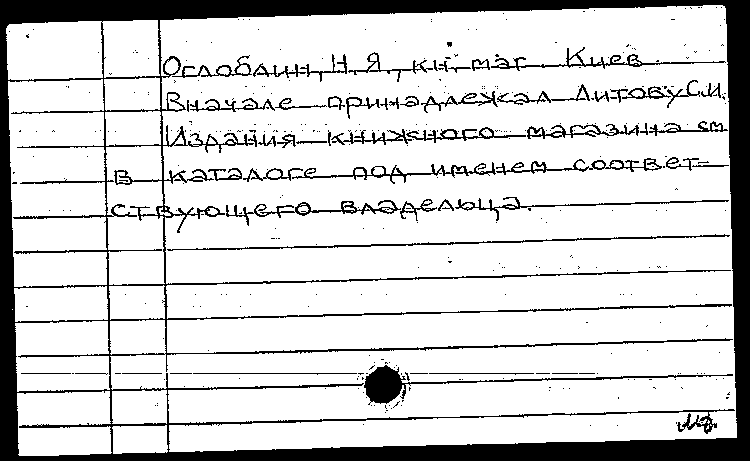 Оглоблин, Н. Я., кн. маг. Киев.
Вначале принадлежал Литову С.И.
Издания книжного магазина см
в каталоге под именем соответ-
ствующего владельца.